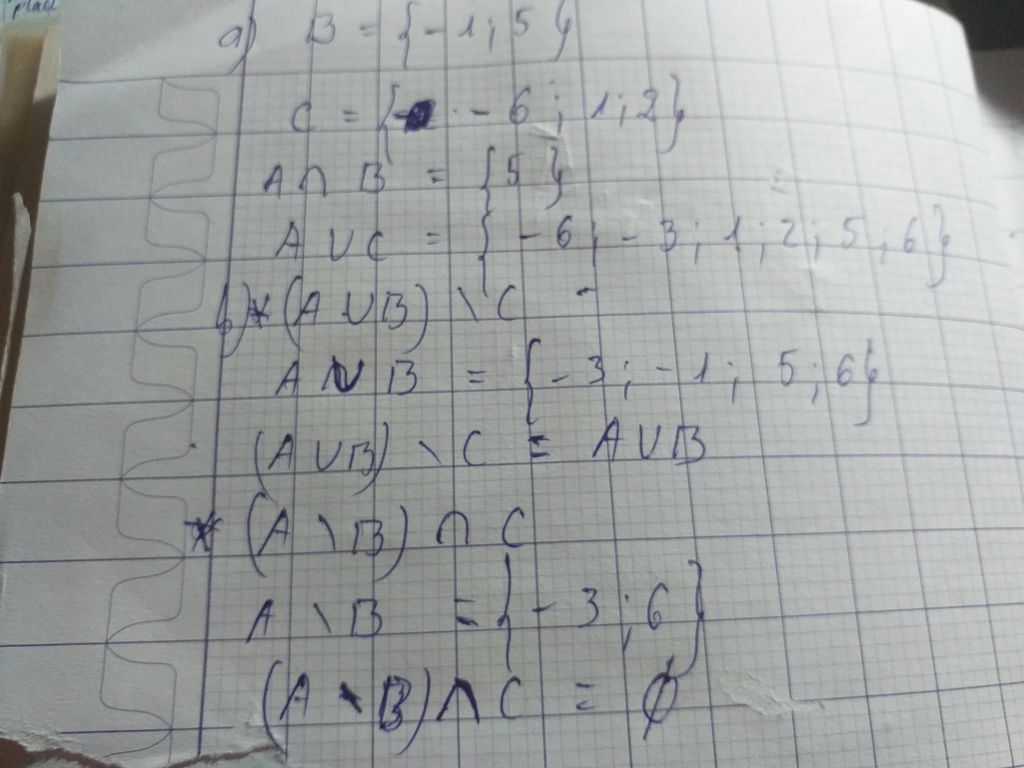 place
a) B = {-1; 5}
C = {- - 6; 1; 2}
A ∩ B = {5}
A ∪ C = {-6; -3; 1; 2; 5; 6}
b) * (A ∪ B) \ C -
A ∪ B = {-3; -1; 5; 6}
(A ∪ B) \ C = A ∪ B
* (A \ B) ∩ C
A \ B = {-3; 6}
(A \ B) ∩ C = ∅